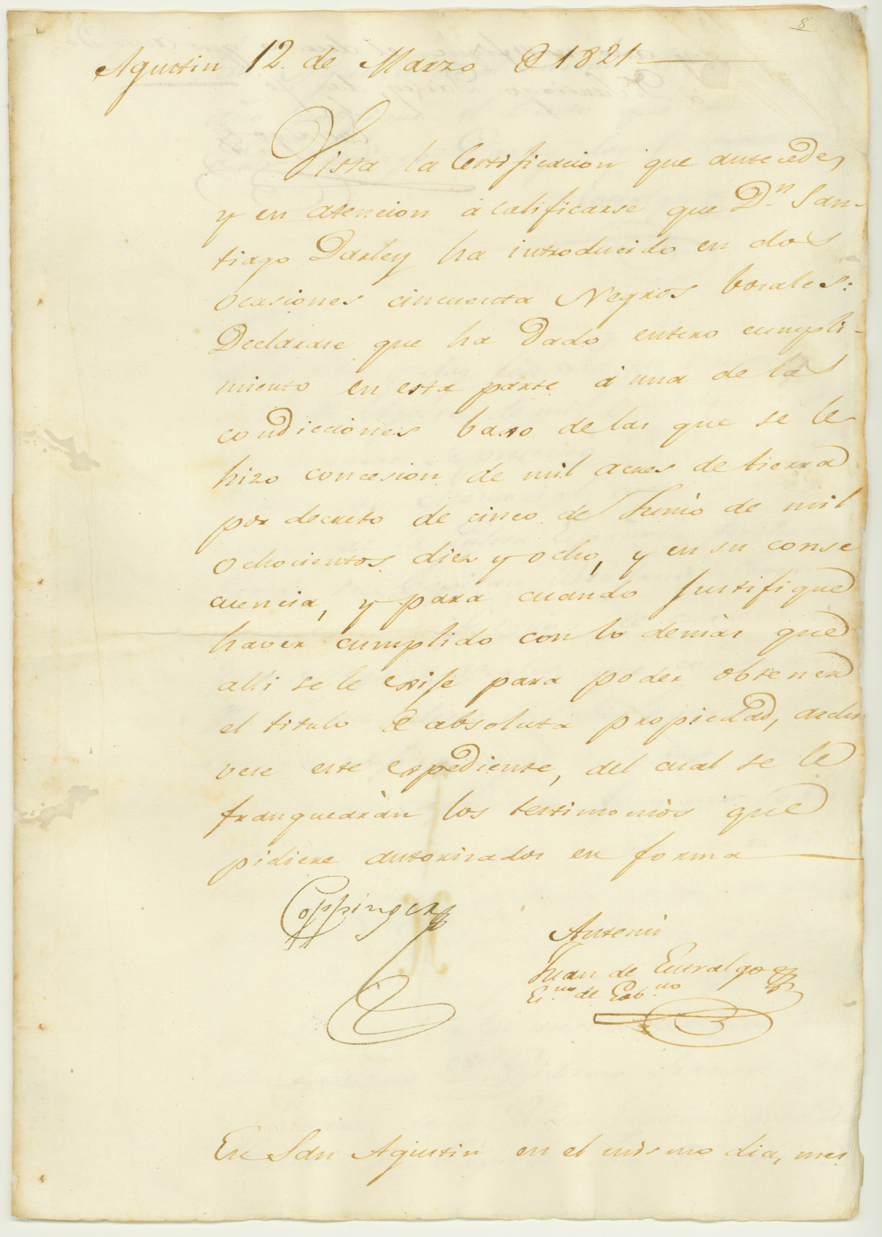 8
Agustin 12. de Marzo D 1821
Vista la Certificacion que antecede,
y en atencion á calificarse que D.n San-
tiago Darley ha introducido en dos
ocasiones cincuenta Negros bozales:
Declarase que ha dado entero cumpli-
miento en esta parte á una de las
condicciones baxo de las que se le
hizo concesion de mil acres de tierra
por decreto de cinco de Junio de mil
ochocientos diez y ocho, y en su conse
cuencia, y para cuando justifique
haver cumplido con lo demàs que
alli se le exije para poder obtener
el titulo de absoluta propiedad, archi
vese este expediente, del cual se le
franquearàn los testimonios que
pidiere autorizados en forma
Coppinger
Antemi
Juan de Entralgo
Es.no de Gob.no
En San Agustin en el mismo dia, mes